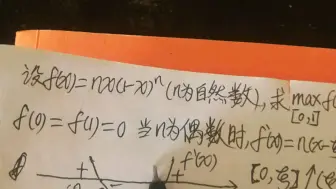 设f(x)=nx(1-x)^n (n为自然数),求 max f(
[0,1]
f(0)=f(1)=0 当n为偶数时,f'(x)=n(x-
+ + f'(x)
[0, ↑(